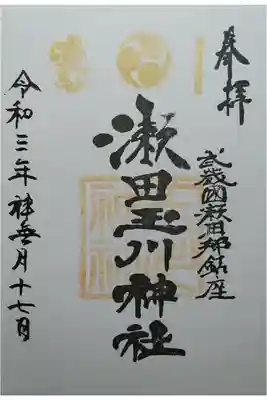 奉拝
武蔵国荏原郡鎮座
瀬田玉川神社
令和三年神無月十七日